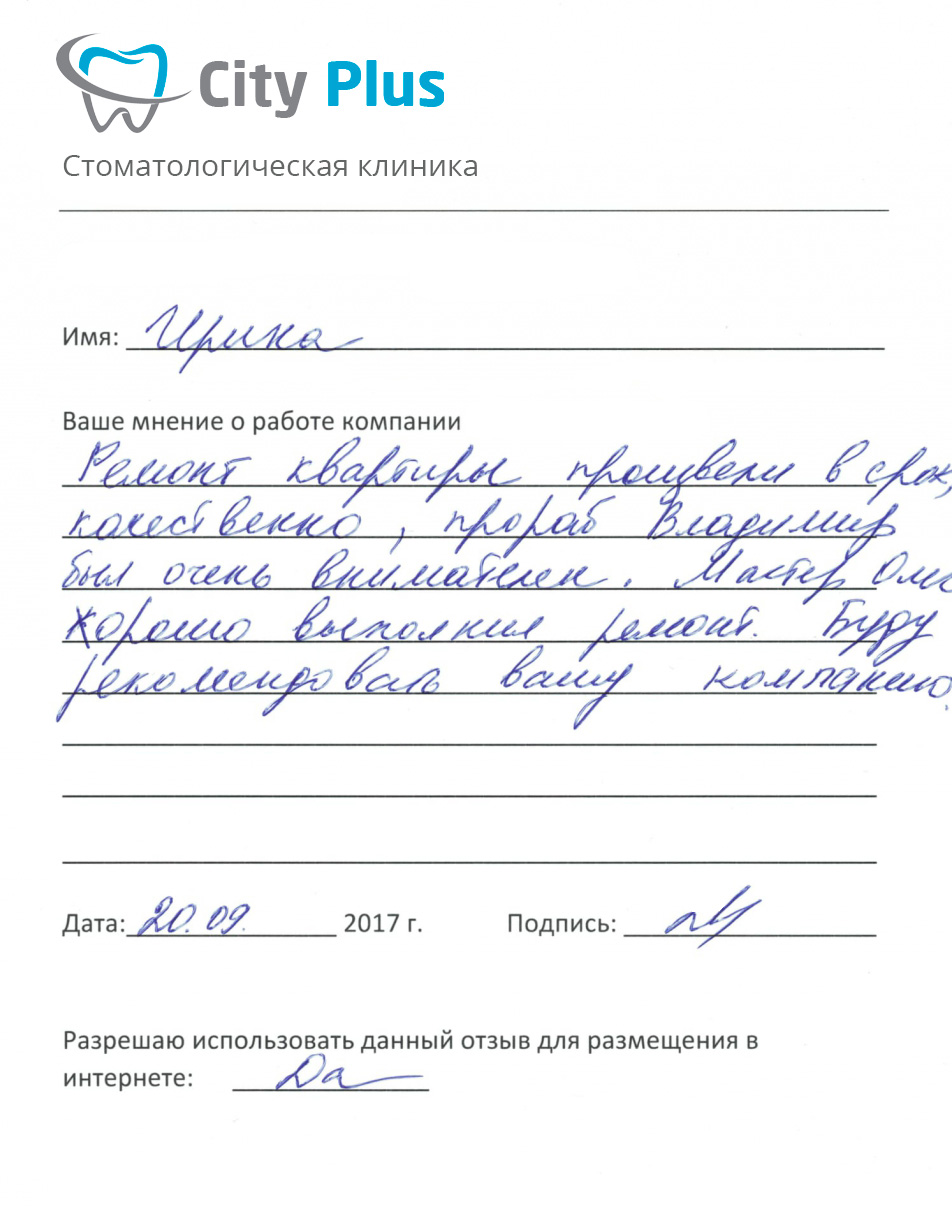 City Plus
Стоматологическая клиника
Имя: Ирина
Ваше мнение о работе компании
Ремонт квартиры произвели в срок,
качественно, прораб Владимир
был очень внимателен. Мастер
Хорошо выполнил ремонт. Буду
рекомендовать вашу компанию.
Дата: 20.09. 2017 г. Подпись:
Разрешаю использовать данный отзыв для размещения в
интернете: Да